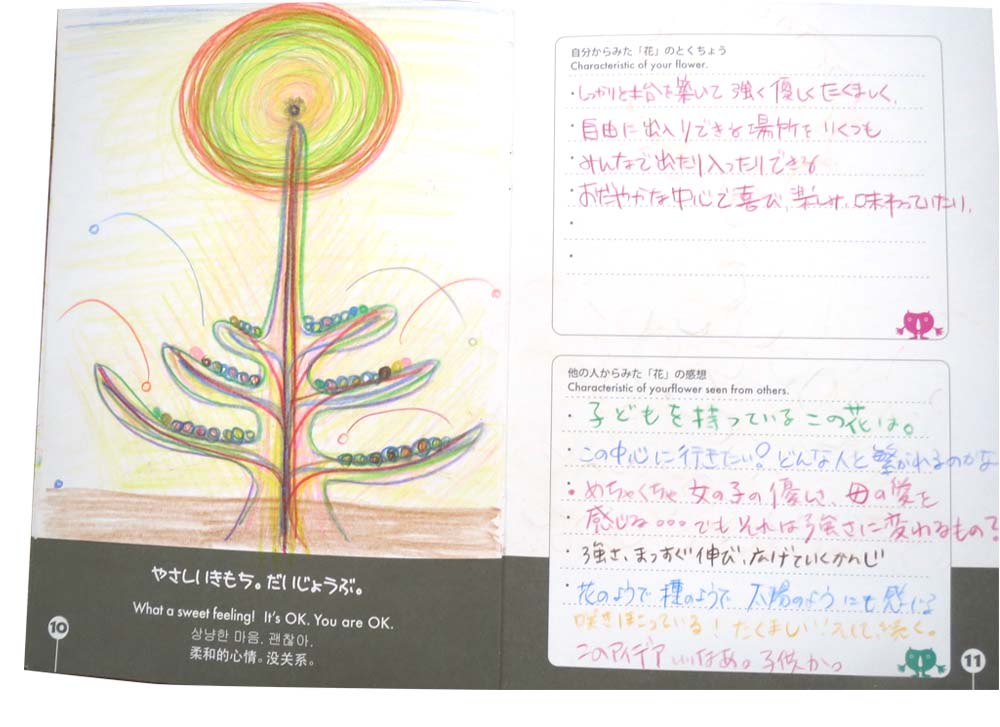 やさしいきもち。だいじょうぶ。
What a sweet feeling! It's OK. You are OK.
상냥한 마음. 괜찮아.
柔和的心情。没关系。
10
自分からみた「花」のとくちょう
Characteristic of your flower.
・しっかりと土台を築いて 強く 優しく たくましく、
・自由に出入りできる場所を いくつも
・みんなで出たり入ったりできる
・おだやかな中心で喜び、楽しみ、味わっていたり、
他の人からみた「花」の感想
Characteristic of yourflower seen from others.
・子どもを持っているこの花は。
・この中心に行きたい?どんな人と繋がれるのかな
・めちゃくちゃ 女の子の優しさ、母の愛を
・感じる・・・でもそれは強さに変わるもの?
・強さ、まっすぐ伸び、広げていくかんじ
・花のようで 種のようで 太陽のようにも感じる
咲きほこっている!たくましい!
このアイデア いいなあ。
11